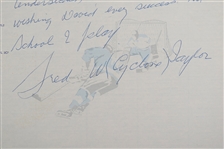 wishing David every success in
School & play
Fred "Cyclone" Taylor